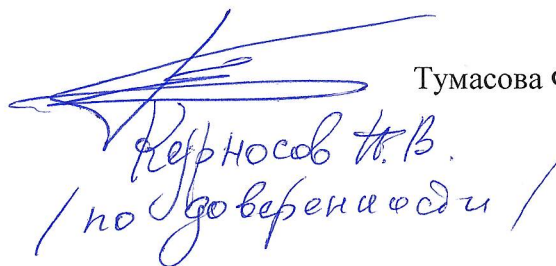 Тумасова
Курносов Н.В.
/ по доверенности /